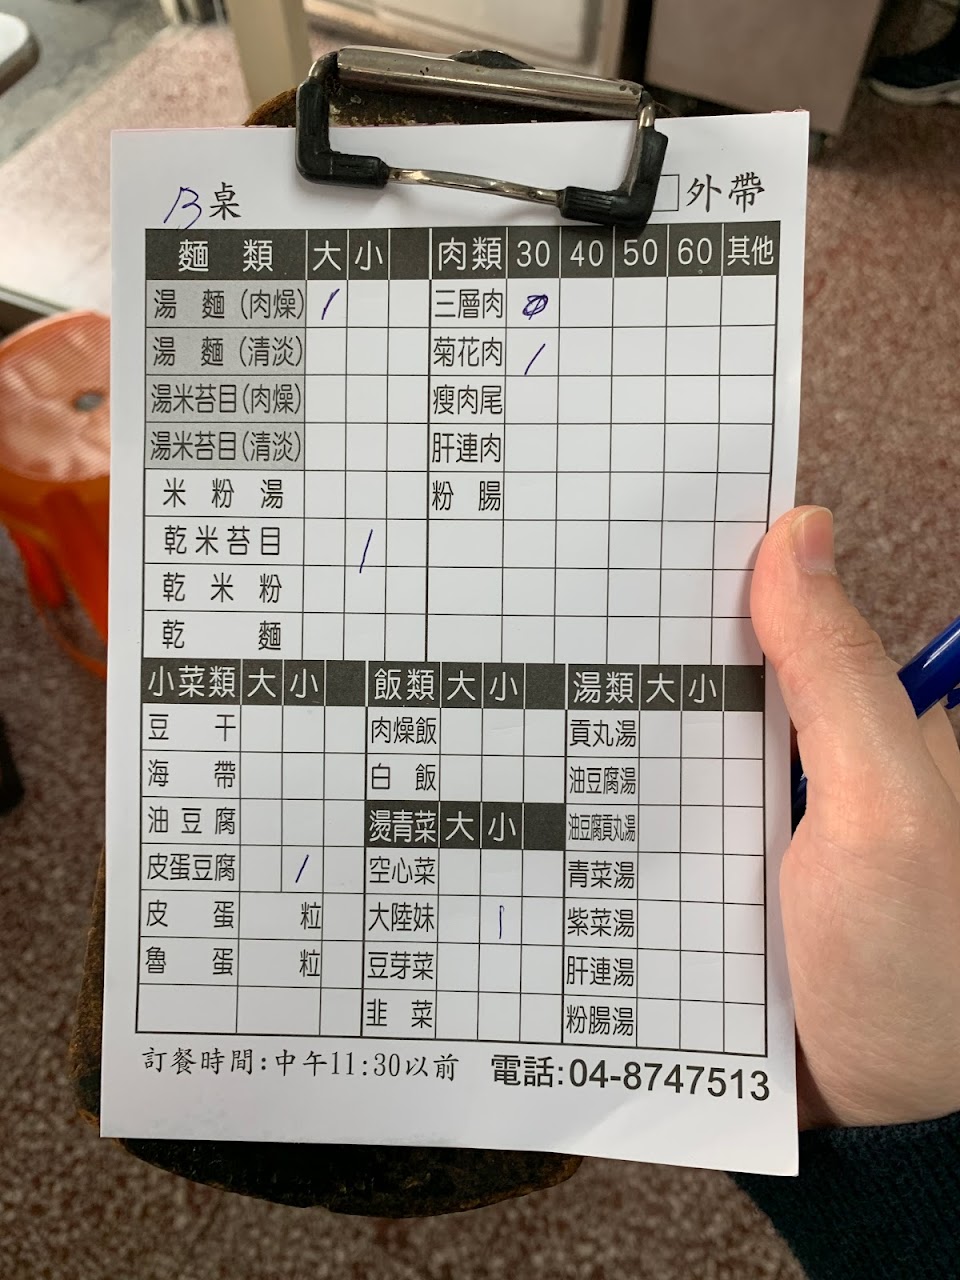 B桌 外帶
麵類 大 小 肉類 30 40 50 60 其他
湯麵(肉燥) / 三層肉
湯麵(清淡) 菊花肉 /
湯米苔目(肉燥) 瘦肉尾
湯米苔目(清淡) 肝連肉
米粉湯 粉腸
乾米苔目 /
乾米粉
乾麵
小菜類 大 小 飯類 大 小 湯類 大 小
豆干 肉燥飯 貢丸湯
海帶 白飯 油豆腐湯
油豆腐 燙青菜 大 小 油豆腐貢丸湯
皮蛋豆腐 / 空心菜 青菜湯
皮蛋 粒 大陸妹 | 紫菜湯
魯蛋 粒 豆芽菜 肝連湯
韭菜 粉腸湯
訂餐時間:中午11:30以前 電話:04-8747513